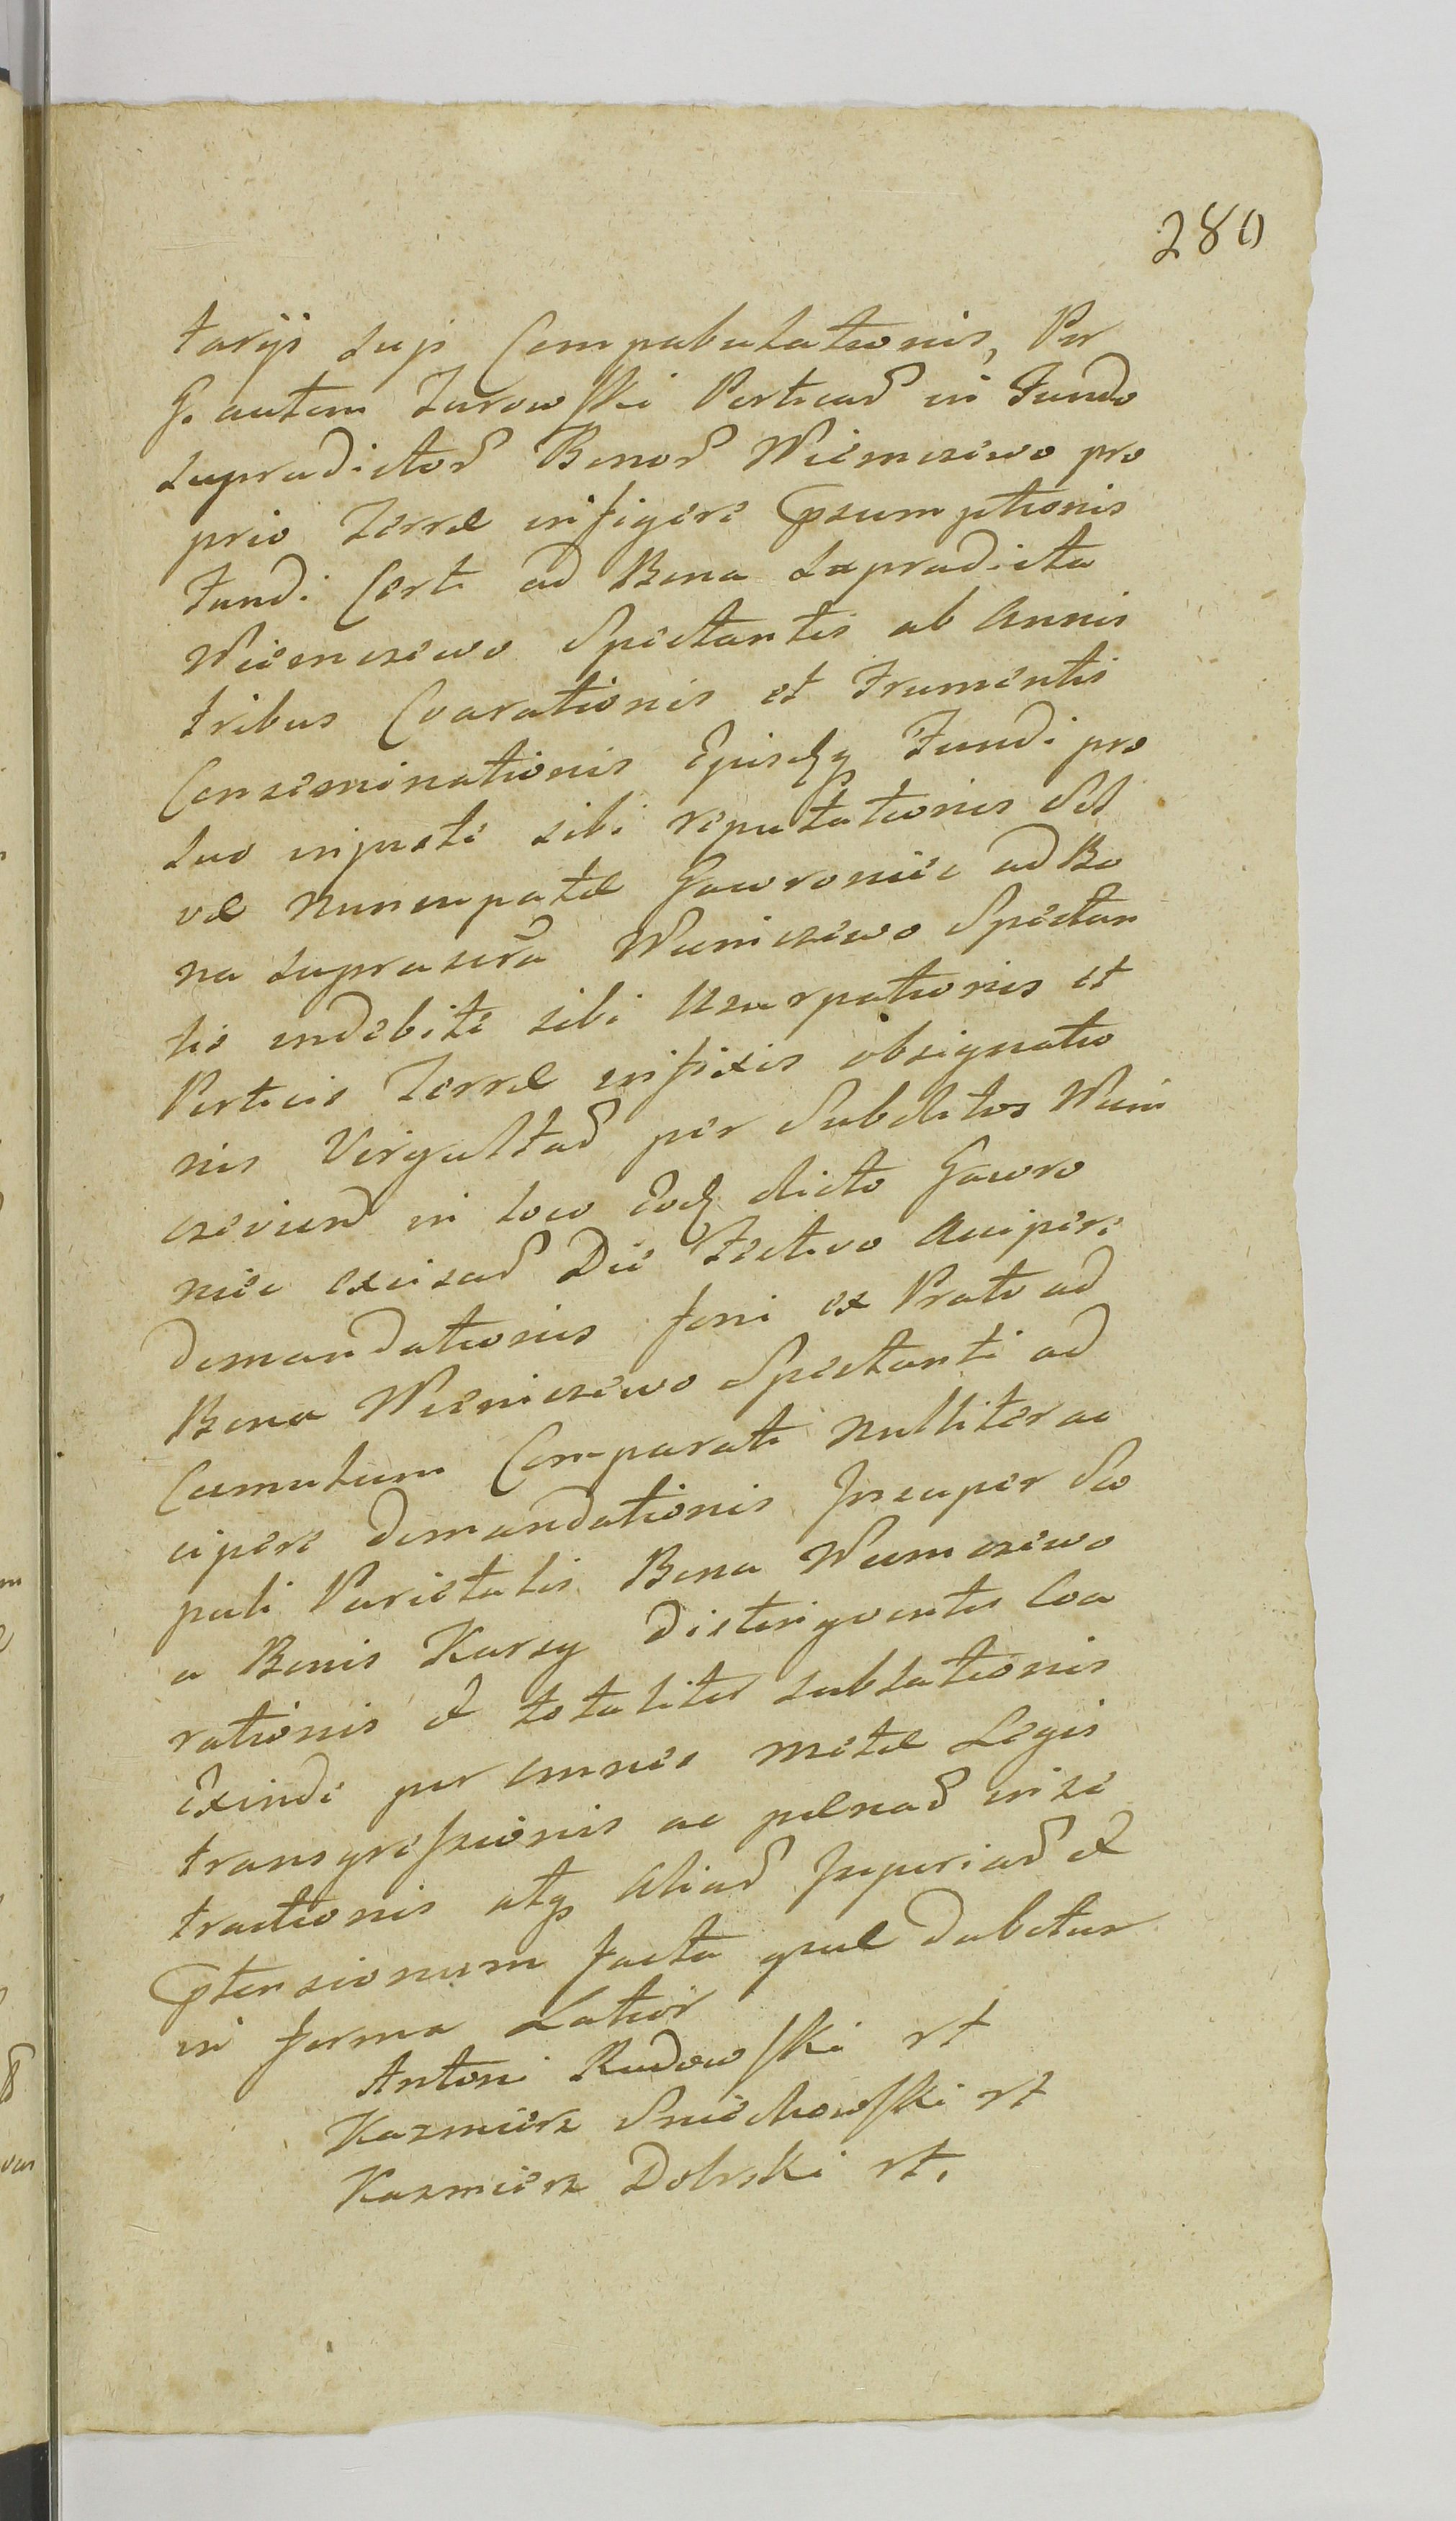 280
tarijs sup Compabulationis, Per
G. autem Zurowski Perticaꝝ in Fundo
supradictoꝝ Bonoꝝ Wiemczewo pro
prio Terræ infigere Præsumptionis
Fundi Certi ad Bona Supradicta
Wiemczewo Spectantis ab Annis
tribus Coarationis et Frumentis
Conseminationis Ejusdq Fundi pro
suo injuste sibi reputationis Sil
væ Nuncupatæ Gawroniec ad Bo
na suprascrā Wieniczewo Spectan
tis indebite sibi Usurpationis et
Perticis Terræ infixis obsignatio
nis Virgultaꝝ per Subditos Wieni
czevien in loco eodq dicto Gawro
niec excisaꝝ Die Festivo Accipere
demandationis foni ex Prato ad
Bona Wieniczewo Spectanti ad
Cumulum Comparati Nulliter ac
cipere demandationis Insuper Sco
puli Parietalis Bona Wiemczewo
a Bonis Karsy distingventis Coa
rationis et totaliter sublationis
Exinde per omnes metæ Legis
transgressionis ac pœnaꝝ in se
tractionis atq Aliaꝝ Injuriaꝝ et
Prætensionum facta quæ dabitur
in forma Latior
Antoni Rudowski rt
Kazmierz Sniechowski rt
Kazmierz Dolnski rt.